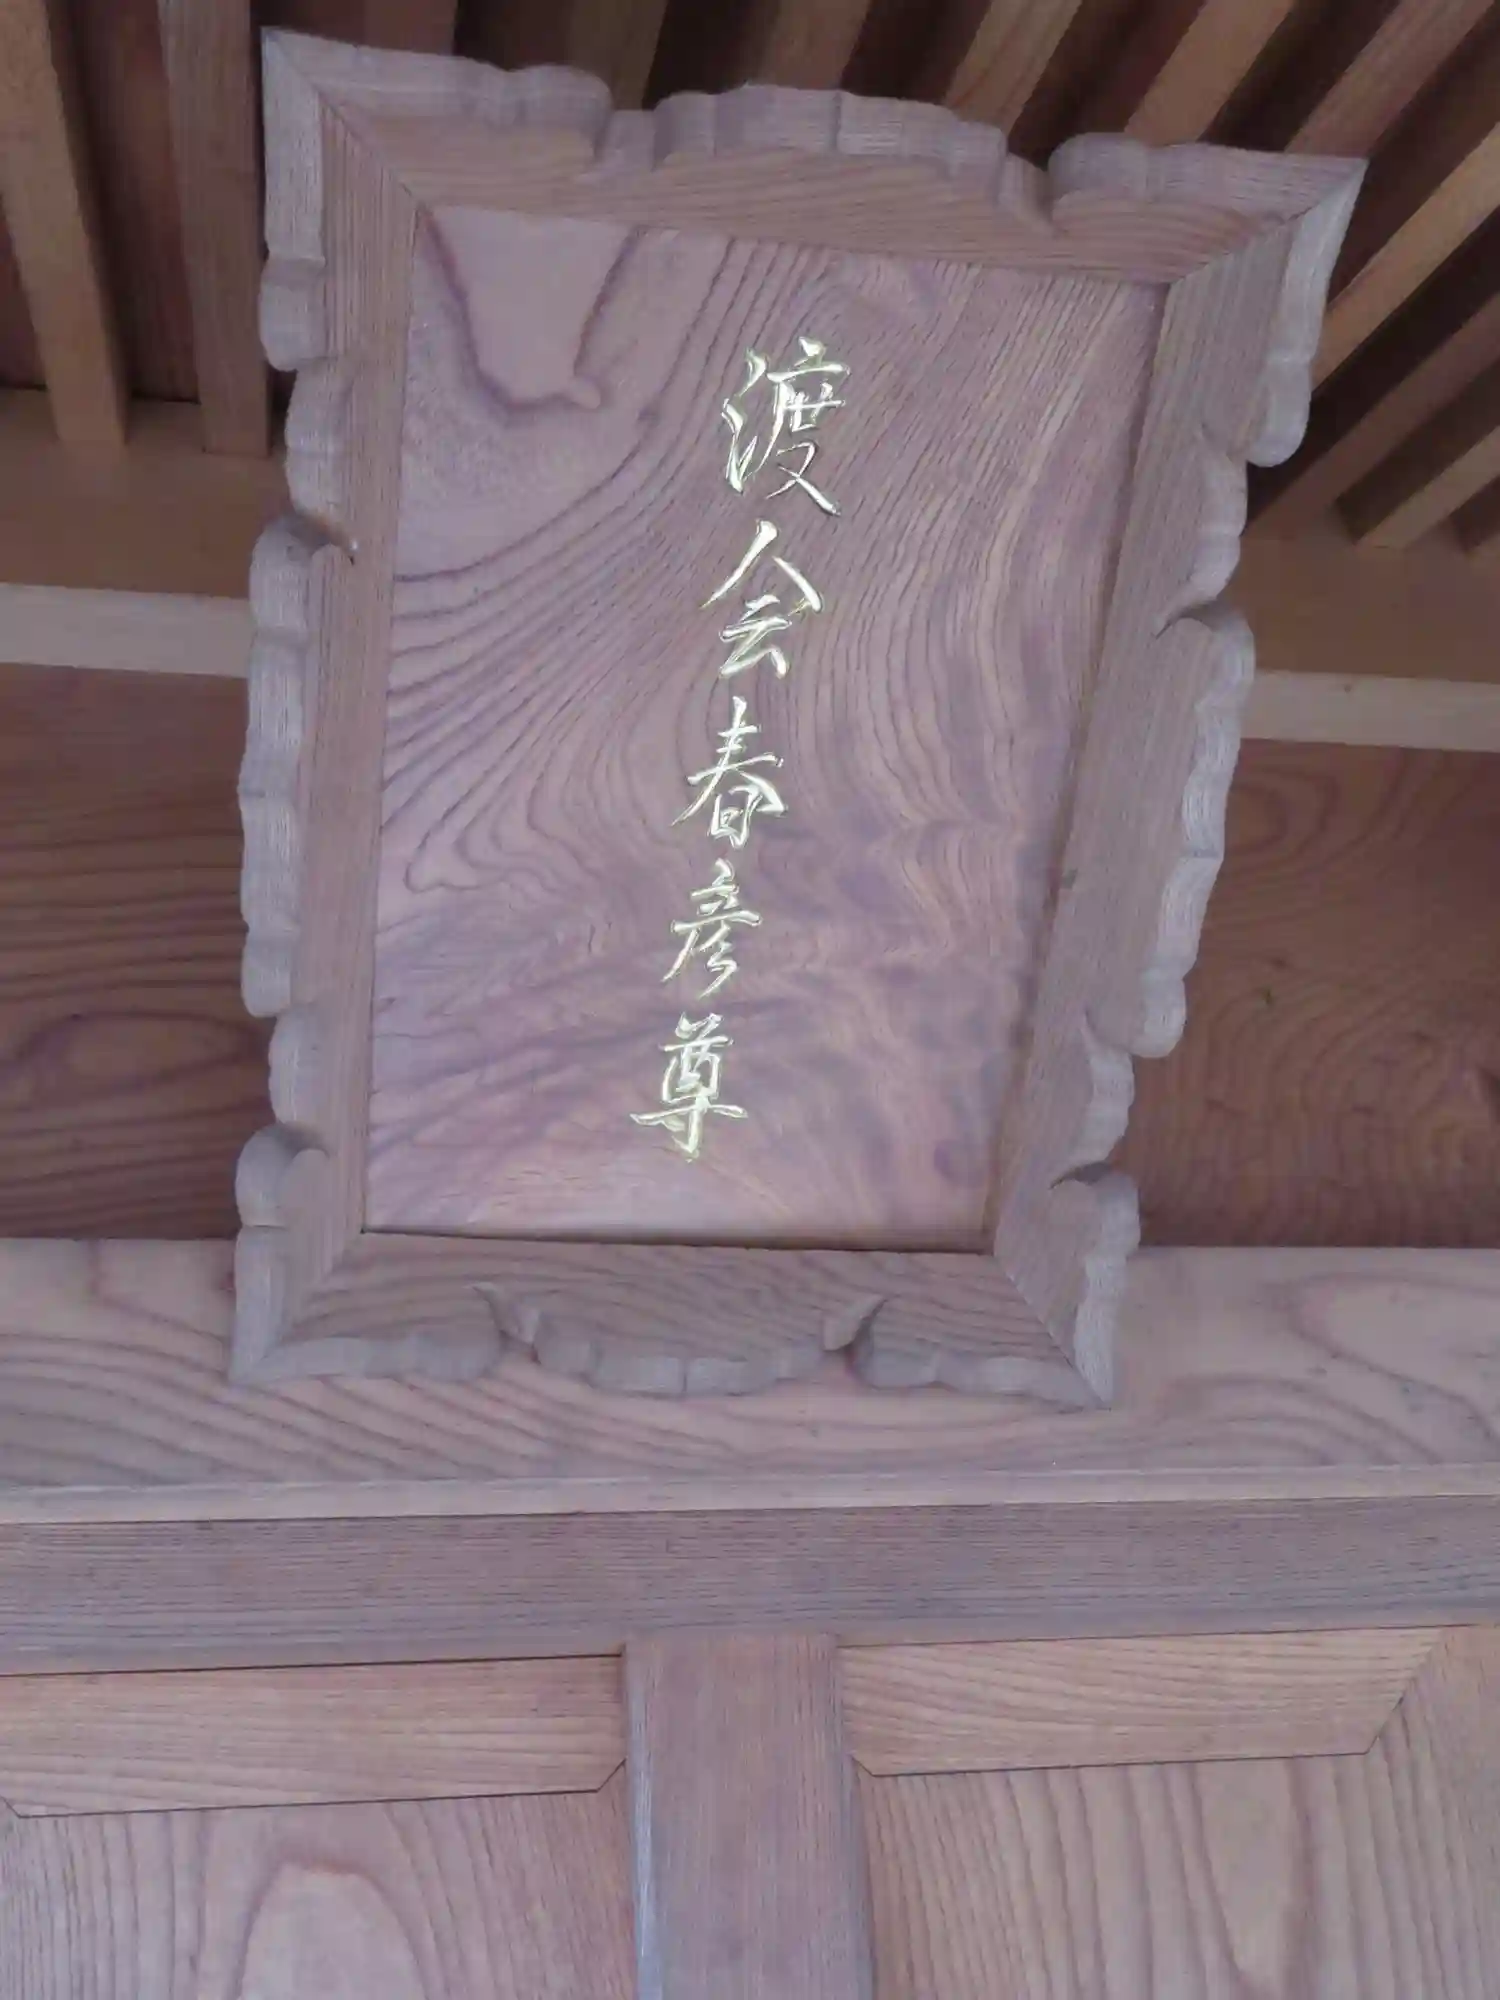 渡会春彦尊